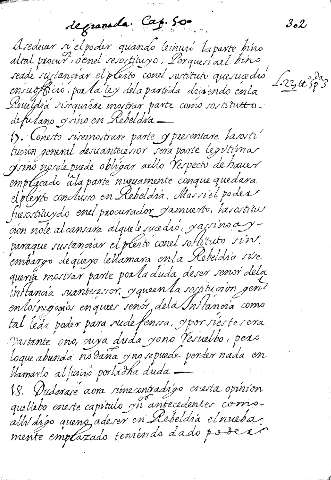 de granada Cap. 50
302
A se de ver si el poder quando le hiço la parte hiço
al tal procur. o en el se sostituyo. Porque si a el hiço
se a de sustanciar el pleito con el sustituto que sucedio
en su officio, por la ley de la partida diciendo en la
Reueldia si no quiere mostrar parte como sostituto
de fulano y sino en Rebeldia
17. Con esto si se mostrare parte y presentare la sosti
tucion general de su antecessor sera parte legitima
y sino no se le puede obligar a ello Respecto de hauer
emplaçado a la parte nueuamente conque quedara
el pleito concluso en Rebeldia. Mas si el poder
fue sostituydo en el procurador ya muerto, la sostitu
cion no le alcansara al que le sucedio, y assi no ay
para que sustanciar el pleito con el sostituto sin
embargo de que yo le llamara en la Rebeldia si se
queria mostrar parte por la duda de ser señor de la
instancia su antecessor, y que en la sostitucion genl
en los negocios en que es señor de la Instancia como
tal le da poder para su defensa, y por si esto sera
bastante o no, cuya duda yo no Resuelbo, pero
lo que abunda no daña y no se puede perder nada en
llamarlo al juicio por la dicha duda
18. Dudarase aora si me contradigo en esta opinion
que lleuo en este capitulo y en antecedentes como
alli digo que no a de ser en Rebeldia el nueba
mente emplaçado teniendo dado poder